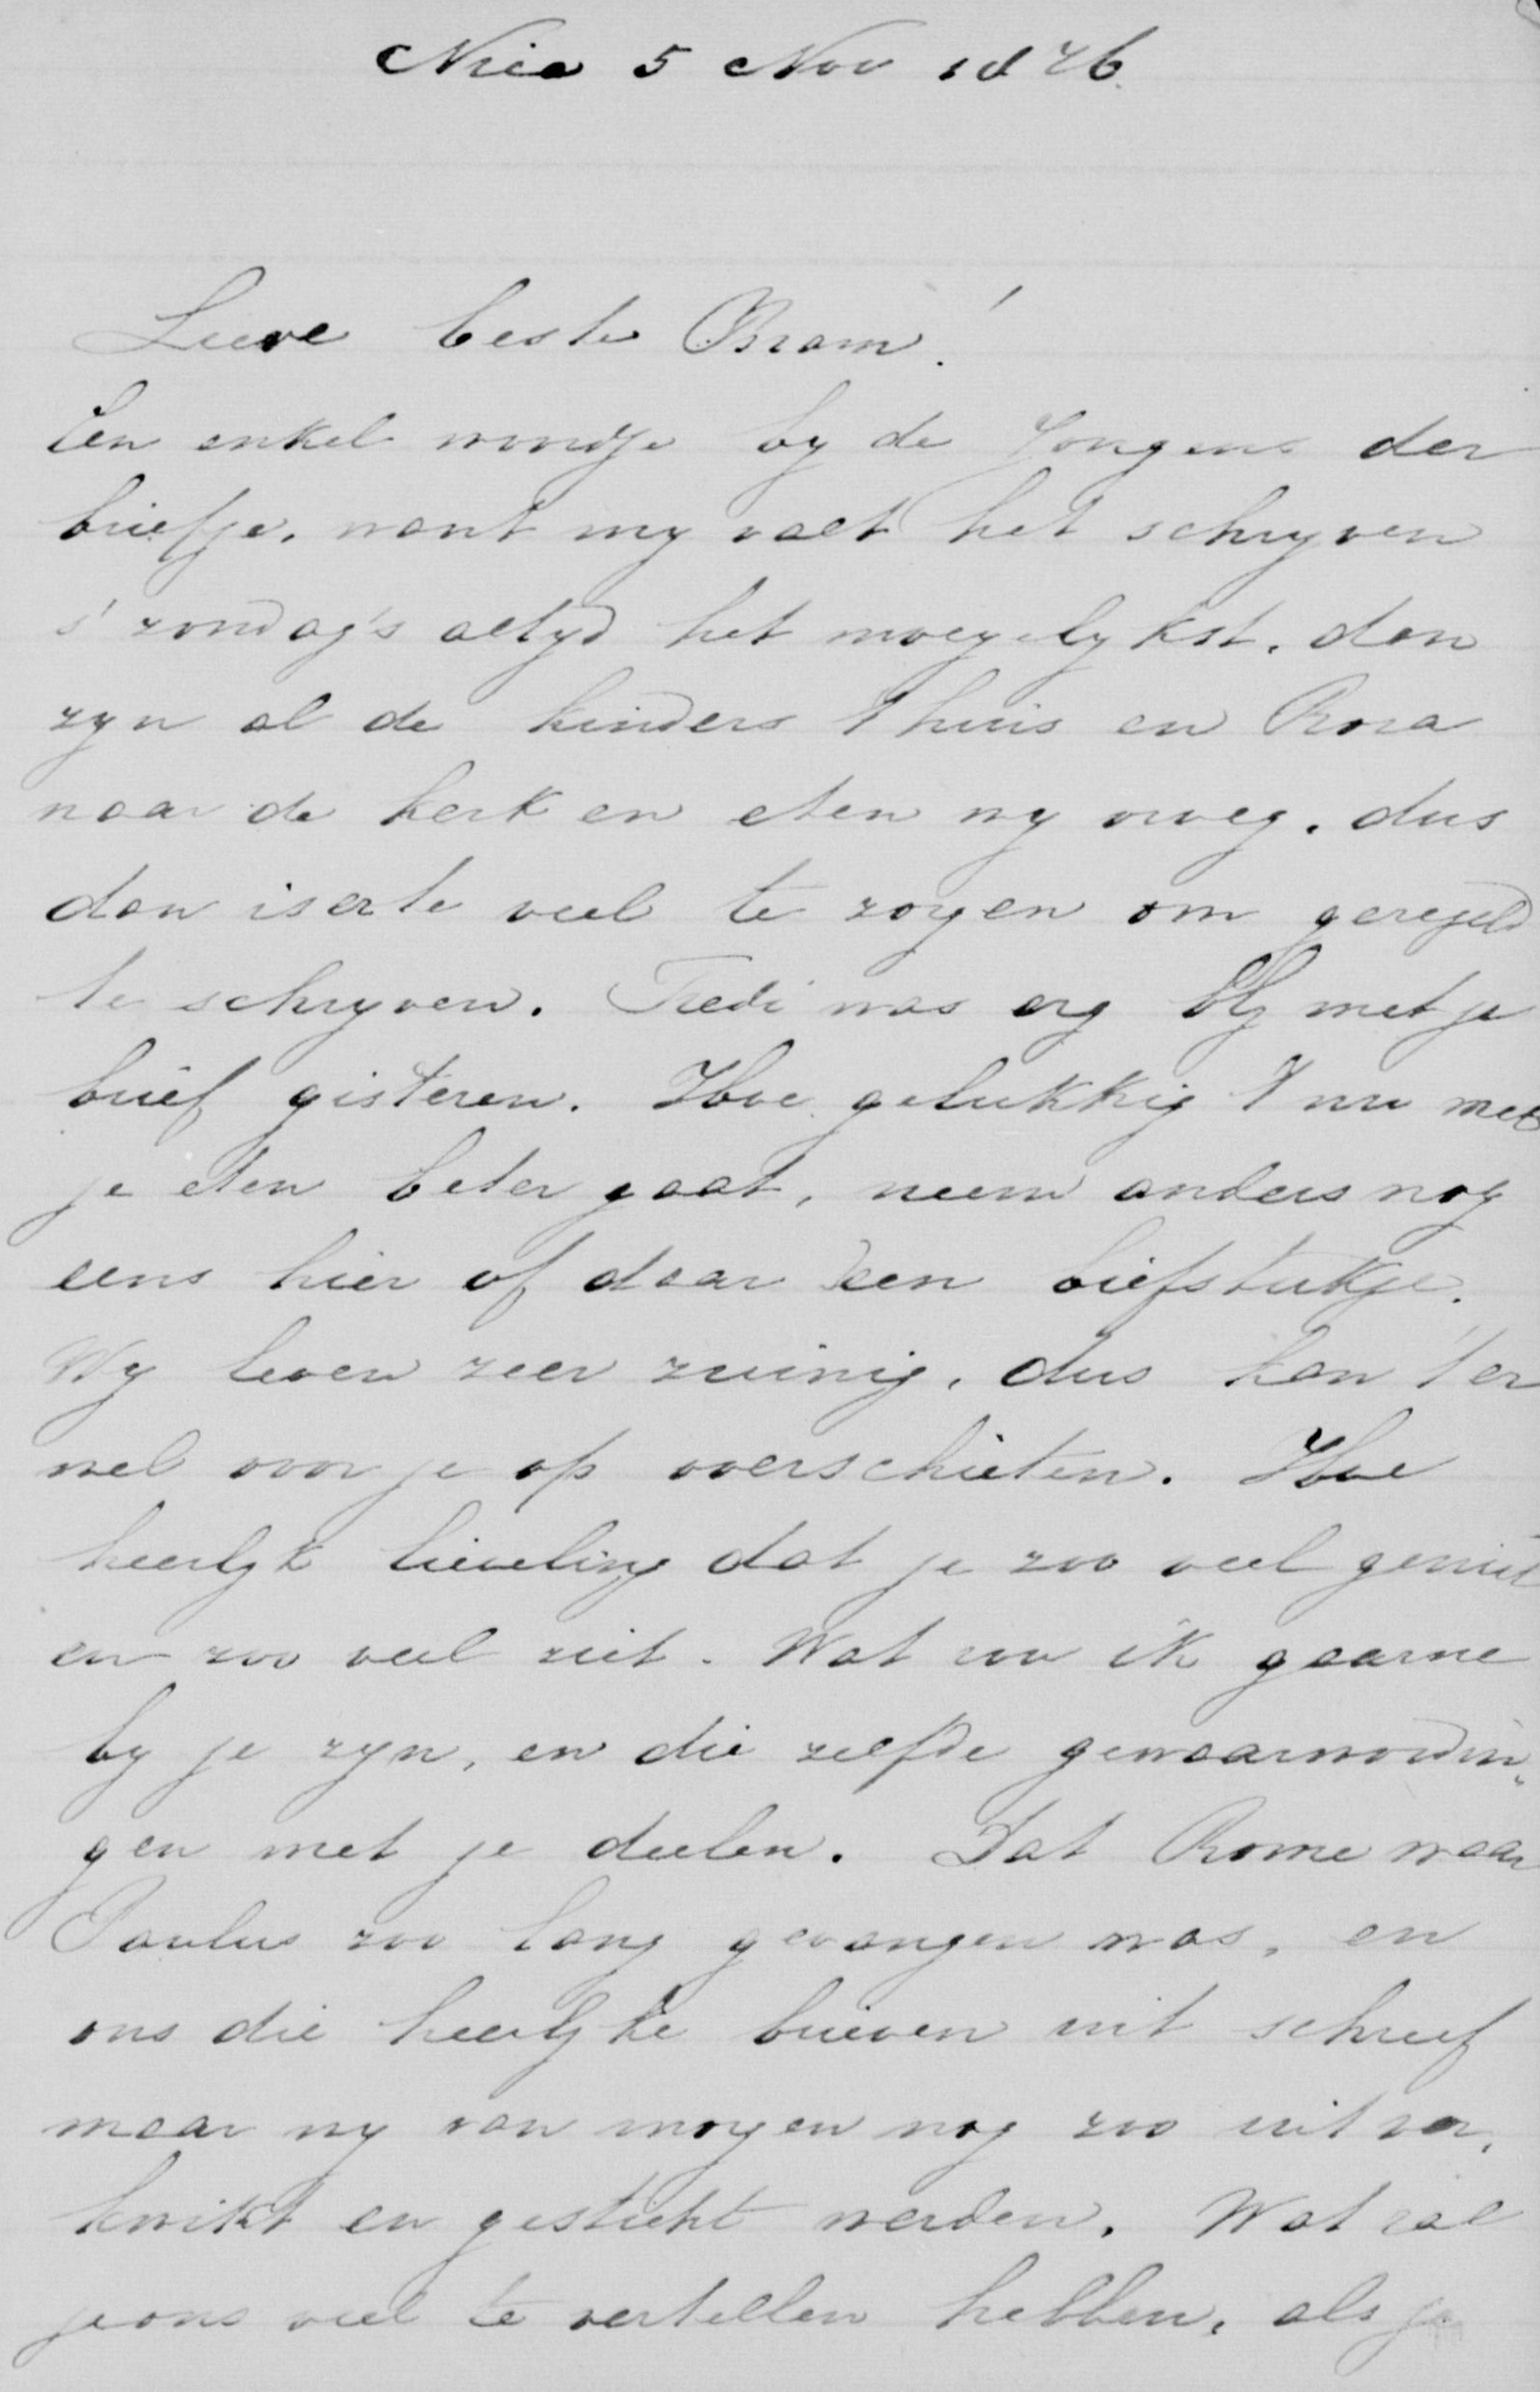 Nice 5 Nov 1876.
Lieve beste Bram!
Een enkel woordje by de Jongens der
briefje, want my valt het schryven
s' zondag's altyd het moeyelykst. dan
zyn al de kinders t'huis en Rosa
naar de kerk en eten wy vroeg. dus
dan is er te veel te zorgen om geregeld
te schryven. Fredi was erg bly met je
brief gisteren. Hoe gelukkig 't nu met
je eten beter gaat, neem anders nog
eens hier of daar een biefstukje.
Wy leven zeer zuinig, dus kan 'ter
wel voor je op overschieten. Hoe
heerlyk lieveling dat je zoo veel geniet
en zoo veel ziet. Wat zou ik gaarne
by je zyn, en die zelfde gewaarwordin„
gen met je deelen. Dat Rome waar
Paulus zoo lang gevangen was, en
ons die heerlyke brieven uit schreef
waar wy van morgen nog zoo uit ver„
kwikt en gesticht werden. Wat zal
je ons veel te vertellen hebben, als je